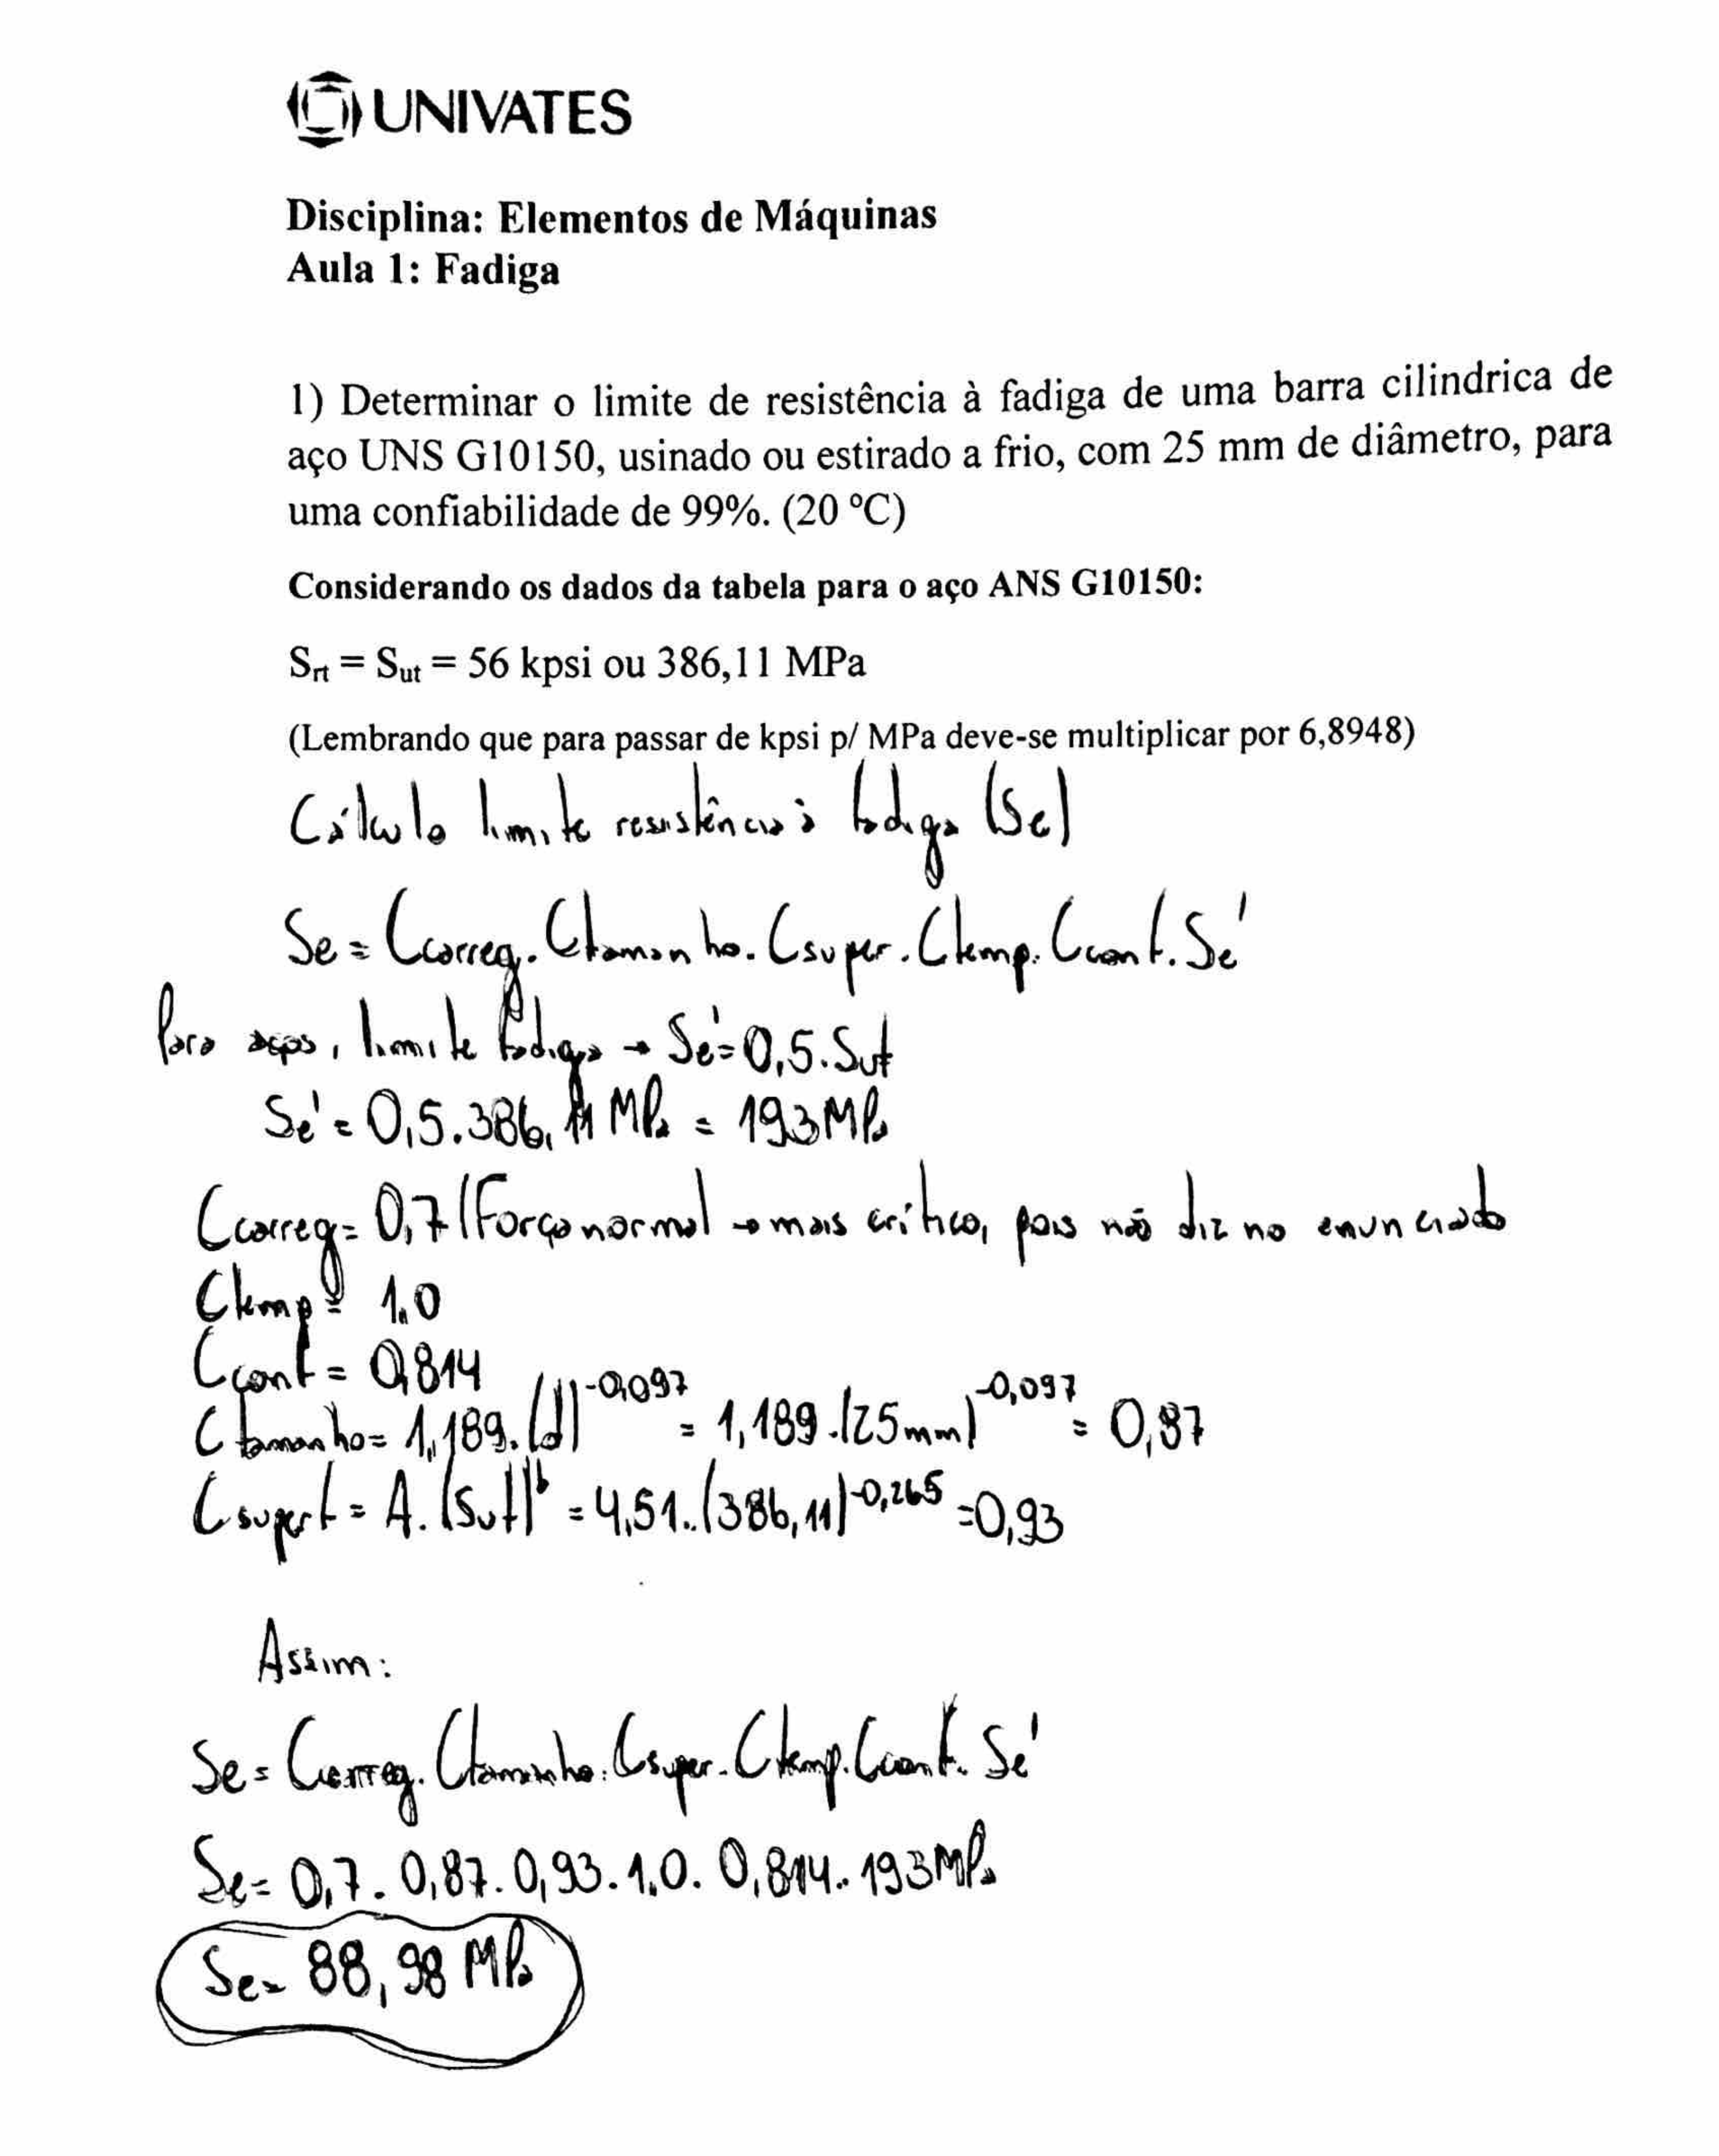 UNIVATES
Disciplina: Elementos de Máquinas
Aula 1: Fadiga
1) Determinar o limite de resistência à fadiga de uma barra cilindrica de
aço UNS G10150, usinado ou estirado a frio, com 25 mm de diâmetro, para
uma confiabilidade de 99%. (20 ºC)
Considerando os dados da tabela para o aço ANS G10150:
Srt = Sut = 56 kpsi ou 386,11 MPa
(Lembrando que para passar de kpsi p/ MPa deve-se multiplicar por 6,8948)
Cálculo limite resistência à fadiga (Se)
Se = Ccarreg. Ctamanho. Csuper. Ctemp. Cconf. Se'
Para aços, limite fadiga → Se'=0,5.Sut
Se' = 0,5.386,11 MPa = 193MPa
Ccarreg = 0,7 (Força normal → mais crítico, pois não diz no enunciado
Ctemp = 1,0
Cconf = 0,814
Ctamanho = 1,189.(d)^-0,097 = 1,189.(25mm)^-0,097 = 0,87
Csuperf = A.(Sut)^b = 4,51.(386,11)^-0,265 = 0,93
Assim:
Se = Ccarreg. Ctamanho. Csuper. Ctemp. Cconf. Se'
Se = 0,7. 0,87. 0,93. 1,0. 0,814. 193MPa
Se = 88,98 MPa